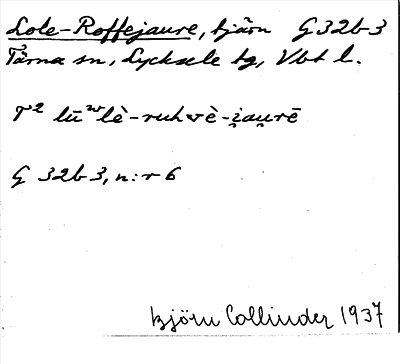 Lole-Roffejaure, tjärn G 32b3
Tärna sn, Lycksele tg, Vbt l.
T² lūʷlè-ruhvè-i̯au̯rē
G 32b3, n:r 6
Björn Collinder 1937